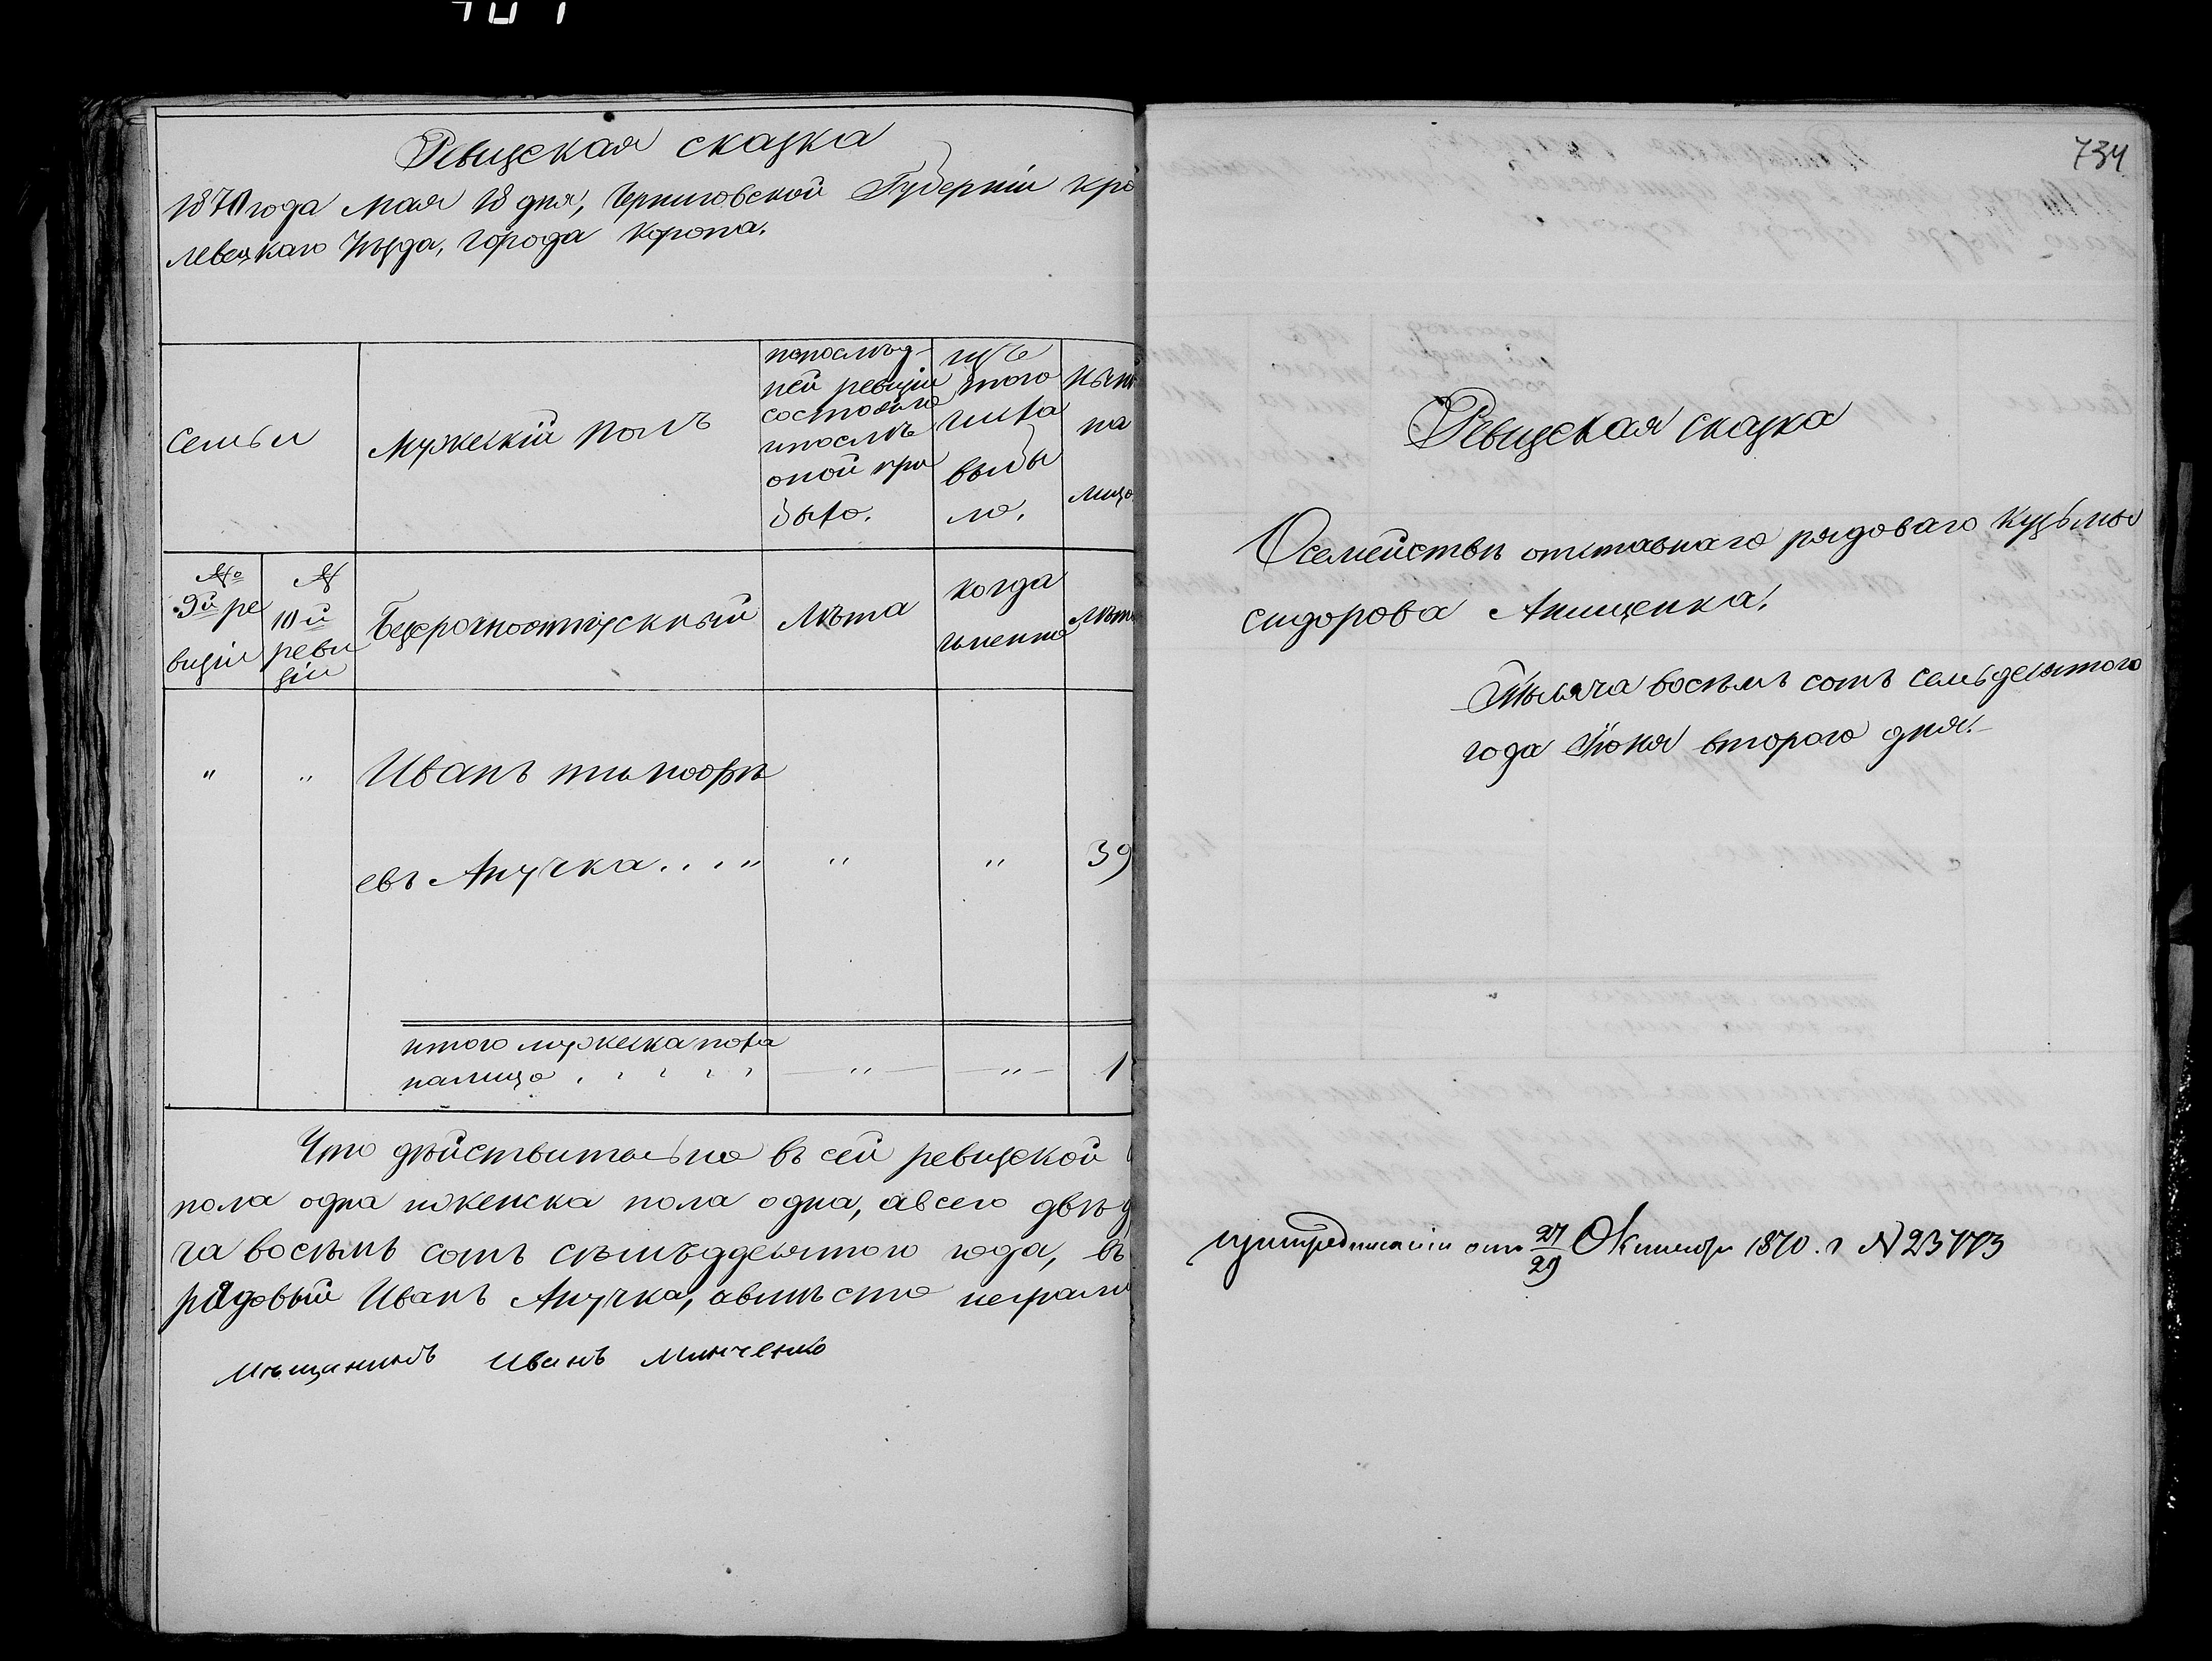 Ревизская сказка
1870 года мая 18 дня, Черниговской Губерніи Кро
левецкаго Уѣзда, города Коропа.
Семьи
Мужескій полъ
попослѣд-
ней ревизіи
состояло
ипослѣ
оной при
было.
изъ
того
числа
выбы
ло.
нынѣ
на
лицо
№
9й ре
визіи
№
10й
реви
зіи
Безсрочноотпускный
Лѣта
когда
именно
Лѣта
" " Иванъ тимофѣ
евъ Анучка . . . " " " 39
итого мужеска пола
налицо . . . . . . — " — — " — 1
Что дѣйствительно въ сей ревизской
пола одна иженска пола одна, авсего двѣ д
ча восѣмъ сотъ сѣмъдесятого года, въ
рядовый Иванъ Анучка, авмѣсто неграмо
Мѣщанинъ Иванъ Минченко
734
Ревизская сказка
Осемействѣ отставнаго рядоваго Кузьмы
сидорова Анищенка.
Тысяча восѣмъ сотъ семьдесятого
года Іюня второго дня.
при предписаніи отъ 27/29 Октября 1870. г № 23773